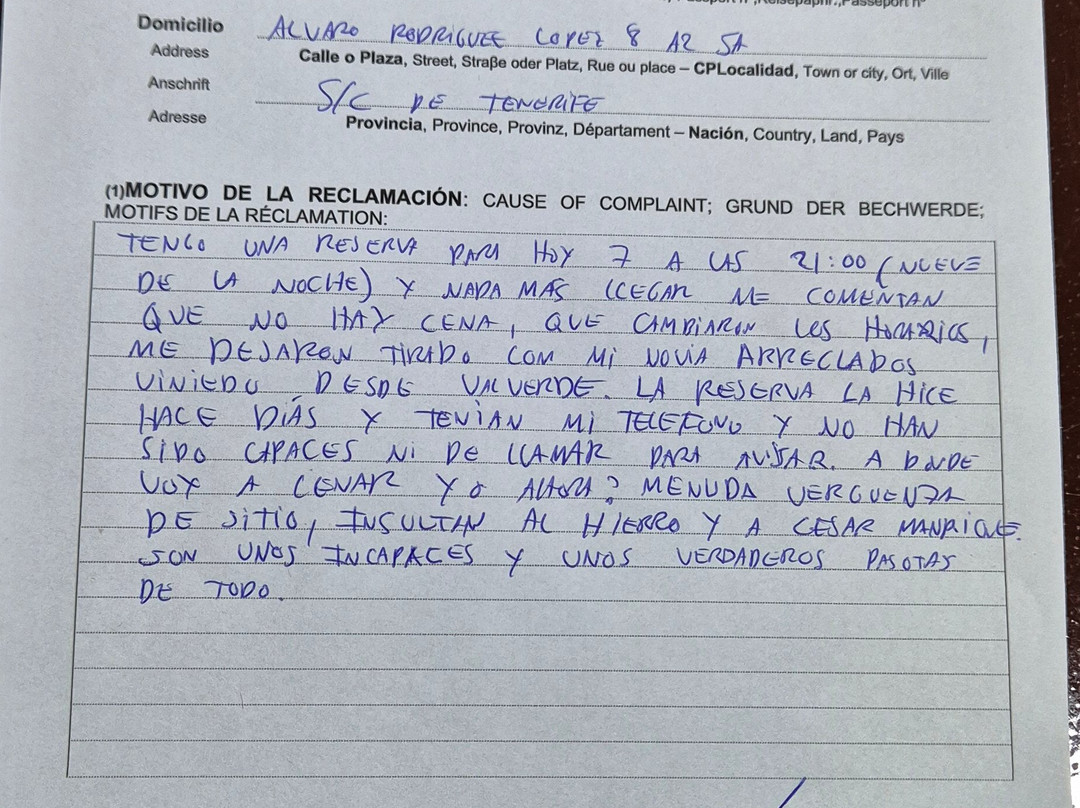 Domicilio ALVARO RODRIGUEE LOPEZ 8 A2 5A
Address Calle o Plaza, Street, Straβe oder Platz, Rue ou place – CPLocalidad, Town or city, Ort, Ville
Anschrift S/C DE TENERIFE
Adresse Provincia, Province, Provinz, Départament – Nación, Country, Land, Pays
(1)MOTIVO DE LA RECLAMACIÓN: CAUSE OF COMPLAINT; GRUND DER BECHWERDE;
MOTIFS DE LA RÉCLAMATION:
TENGO UNA RESERVA PARA HOY 7 A LAS 21:00 (NUEVE
DE LA NOCHE) Y NADA MAS LLEGAR ME COMENTAN
QUE NO HAY CENA, QUE CAMBIARON LOS HORARIOS,
ME DEJARON TIRADO CON MI NOVIA ARREGLADOS
VINIEDO DESDE VALVERDE. LA RESERVA LA HICE
HACE DÍAS Y TENIAN MI TELEFONO Y NO HAN
SIDO CAPACES NI DE LLAMAR PARA AVISAR. A DONDE
VOY A CENAR YO AHORA? MENUDA VERGUENZA
DE SITIO, INSULTAN AL HIERRO Y A CESAR MANRIQUE.
SON UNOS INCAPACES Y UNOS VERDADEROS PASOTAS
DE TODO.